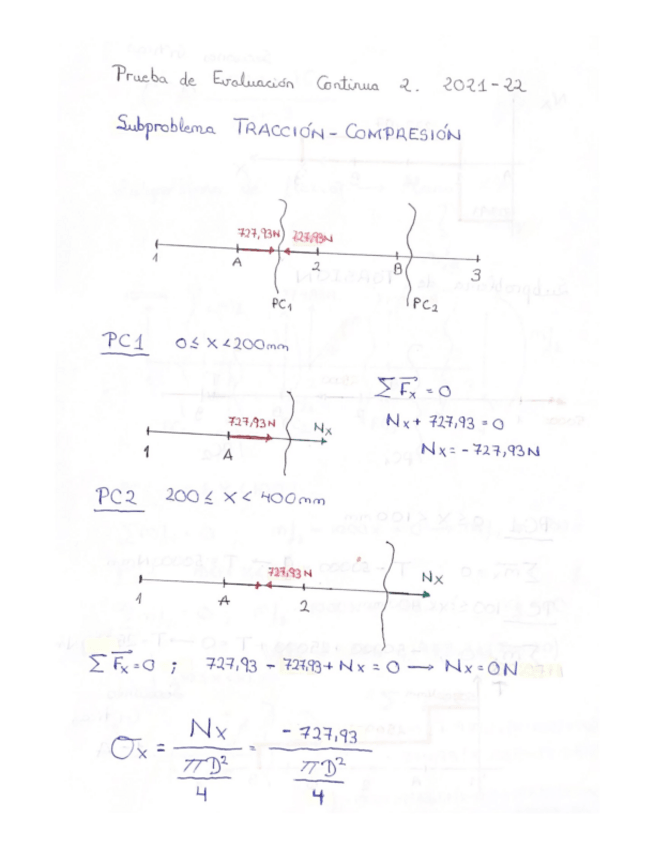 Prueba de Evaluación Continua 2. 2021-22
Subproblema TRACCIÓN - COMPRESIÓN
727,93N 727,93N
1 A 2 B 3
PC1 PC2
PC1 0 ≤ x < 200mm
ΣFx = 0
727,93N Nx
Nx + 727,93 = 0
1 A
Nx = - 727,93N
PC2 200 ≤ x < 400mm
727,93 N Nx
1 A 2
ΣFx = 0 ; 727,93 - 727,93 + Nx = 0 → Nx = 0N
σx = Nx / (πD² / 4) = - 727,93 / (πD² / 4)